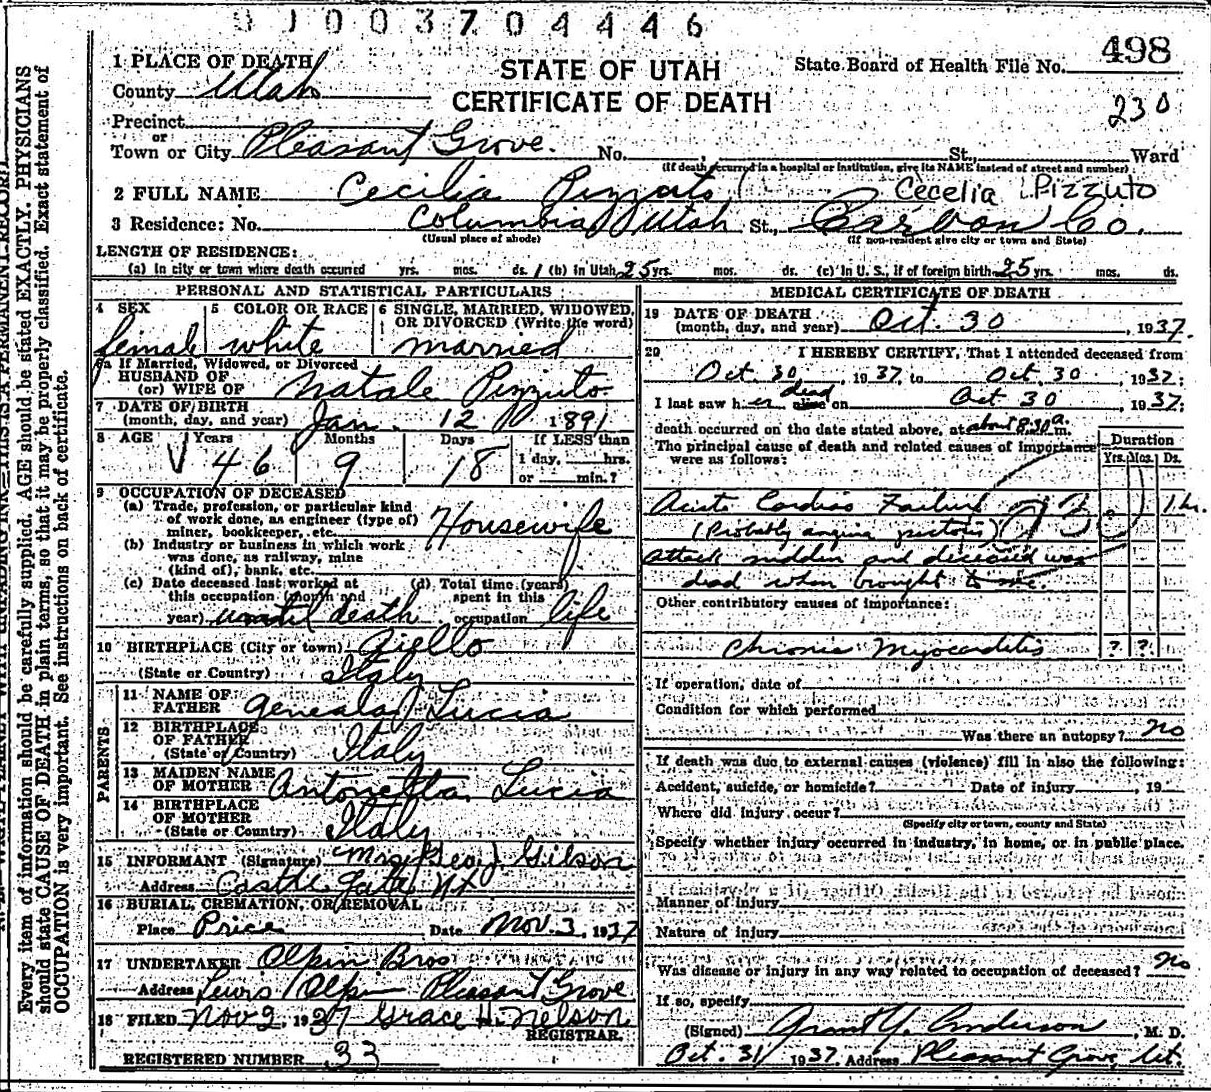 9 1 0 0 3 7 0 4 4 4 6
498
230
STATE OF UTAH
CERTIFICATE OF DEATH
State Board of Health File No.
1 PLACE OF DEATH
County Utah
Precinct
or
Town or City Pleasant Grove. No. , St., Ward
(If death occurred in a hospital or institution, give its NAME instead of street and number)
2 FULL NAME Cecilia Pizzuto Cecelia Pizzuto
3 Residence: No. Columbia Utah St., Carbon Co.
(Usual place of abode) (If non-resident give city or town and State)
LENGTH OF RESIDENCE:
(a) In city or town where death occurred yrs. mos. ds. 1 (b) In Utah 25 yrs. mos. ds. (c) In U. S., if of foreign birth 25 yrs. mos. ds.
PERSONAL AND STATISTICAL PARTICULARS
4 SEX female
5 COLOR OR RACE white
6 SINGLE, MARRIED, WIDOWED,
OR DIVORCED (Write the word)
married
If Married, Widowed, or Divorced
HUSBAND OF
(or) WIFE OF Natale Pizzuto
7 DATE OF BIRTH
(month, day, and year) Jan. 12 1891
8 AGE Years Months Days If LESS than
46 9 18 1 day, hrs.
or min.?
9 OCCUPATION OF DECEASED
(a) Trade, profession, or particular kind
of work done, as engineer (type of)
miner, bookkeeper, etc. Housewife
(b) Industry or business in which work
was done, as railway, mine
(kind of), bank, etc.
(c) Date deceased last worked at
this occupation (month and
year) until death
(d) Total time (years)
spent in this
occupation life
10 BIRTHPLACE (City or town) Aiello
(State or Country) Italy
PARENTS
11 NAME OF
FATHER Lucia
12 BIRTHPLACE
OF FATHER
(State or Country) Italy
13 MAIDEN NAME
OF MOTHER Antonetta Lucia
14 BIRTHPLACE
OF MOTHER
(State or Country) Italy
15 INFORMANT (Signature) Mrs. Geo J Gilson
Address Castle Gate Ut
16 BURIAL, CREMATION, OR REMOVAL
Place Price Date Nov. 3, 1937
17 UNDERTAKER Olpin Bros
Address Lewis Olpin Pleasant Grove
18 FILED Nov 2, 1937 Grace H. Nelson
REGISTRAR.
REGISTERED NUMBER 33
MEDICAL CERTIFICATE OF DEATH
19 DATE OF DEATH
(month, day, and year) Oct. 30, 1937.
20 I HEREBY CERTIFY, That I attended deceased from
Oct. 30, 1937, to Oct. 30, 1937;
I last saw her alive dead on Oct 30, 1937;
death occurred on the date stated above, at about 8:30 a. m.
The principal cause of death and related causes of importance
were as follows:
Duration
Yrs. Mos. Ds.
Acute Cardiac Failure 1 hr.
(Probably angina pectoris)
attack sudden and deceased was
dead when brought to me.
Other contributory causes of importance:
Chronic Myocarditis ? ?
If operation, date of
Condition for which performed
Was there an autopsy? no
If death was due to external causes (violence) fill in also the following:
Accident, suicide, or homicide? Date of injury , 19
Where did injury occur?
(Specify city or town, county and State)
Specify whether injury occurred in industry, in home, or in public place.
Manner of injury
Nature of injury
Was disease or injury in any way related to occupation of deceased? no
If so, specify
(Signed) Grant Y. Anderson, M. D.
Oct. 31 1937. Address Pleasant Grove, Ut.
Every item of information should be carefully supplied. AGE should be stated EXACTLY. PHYSICIANS
should state CAUSE OF DEATH in plain terms, so that it may be properly classified. Exact statement of
OCCUPATION is very important. See instructions on back of certificate.